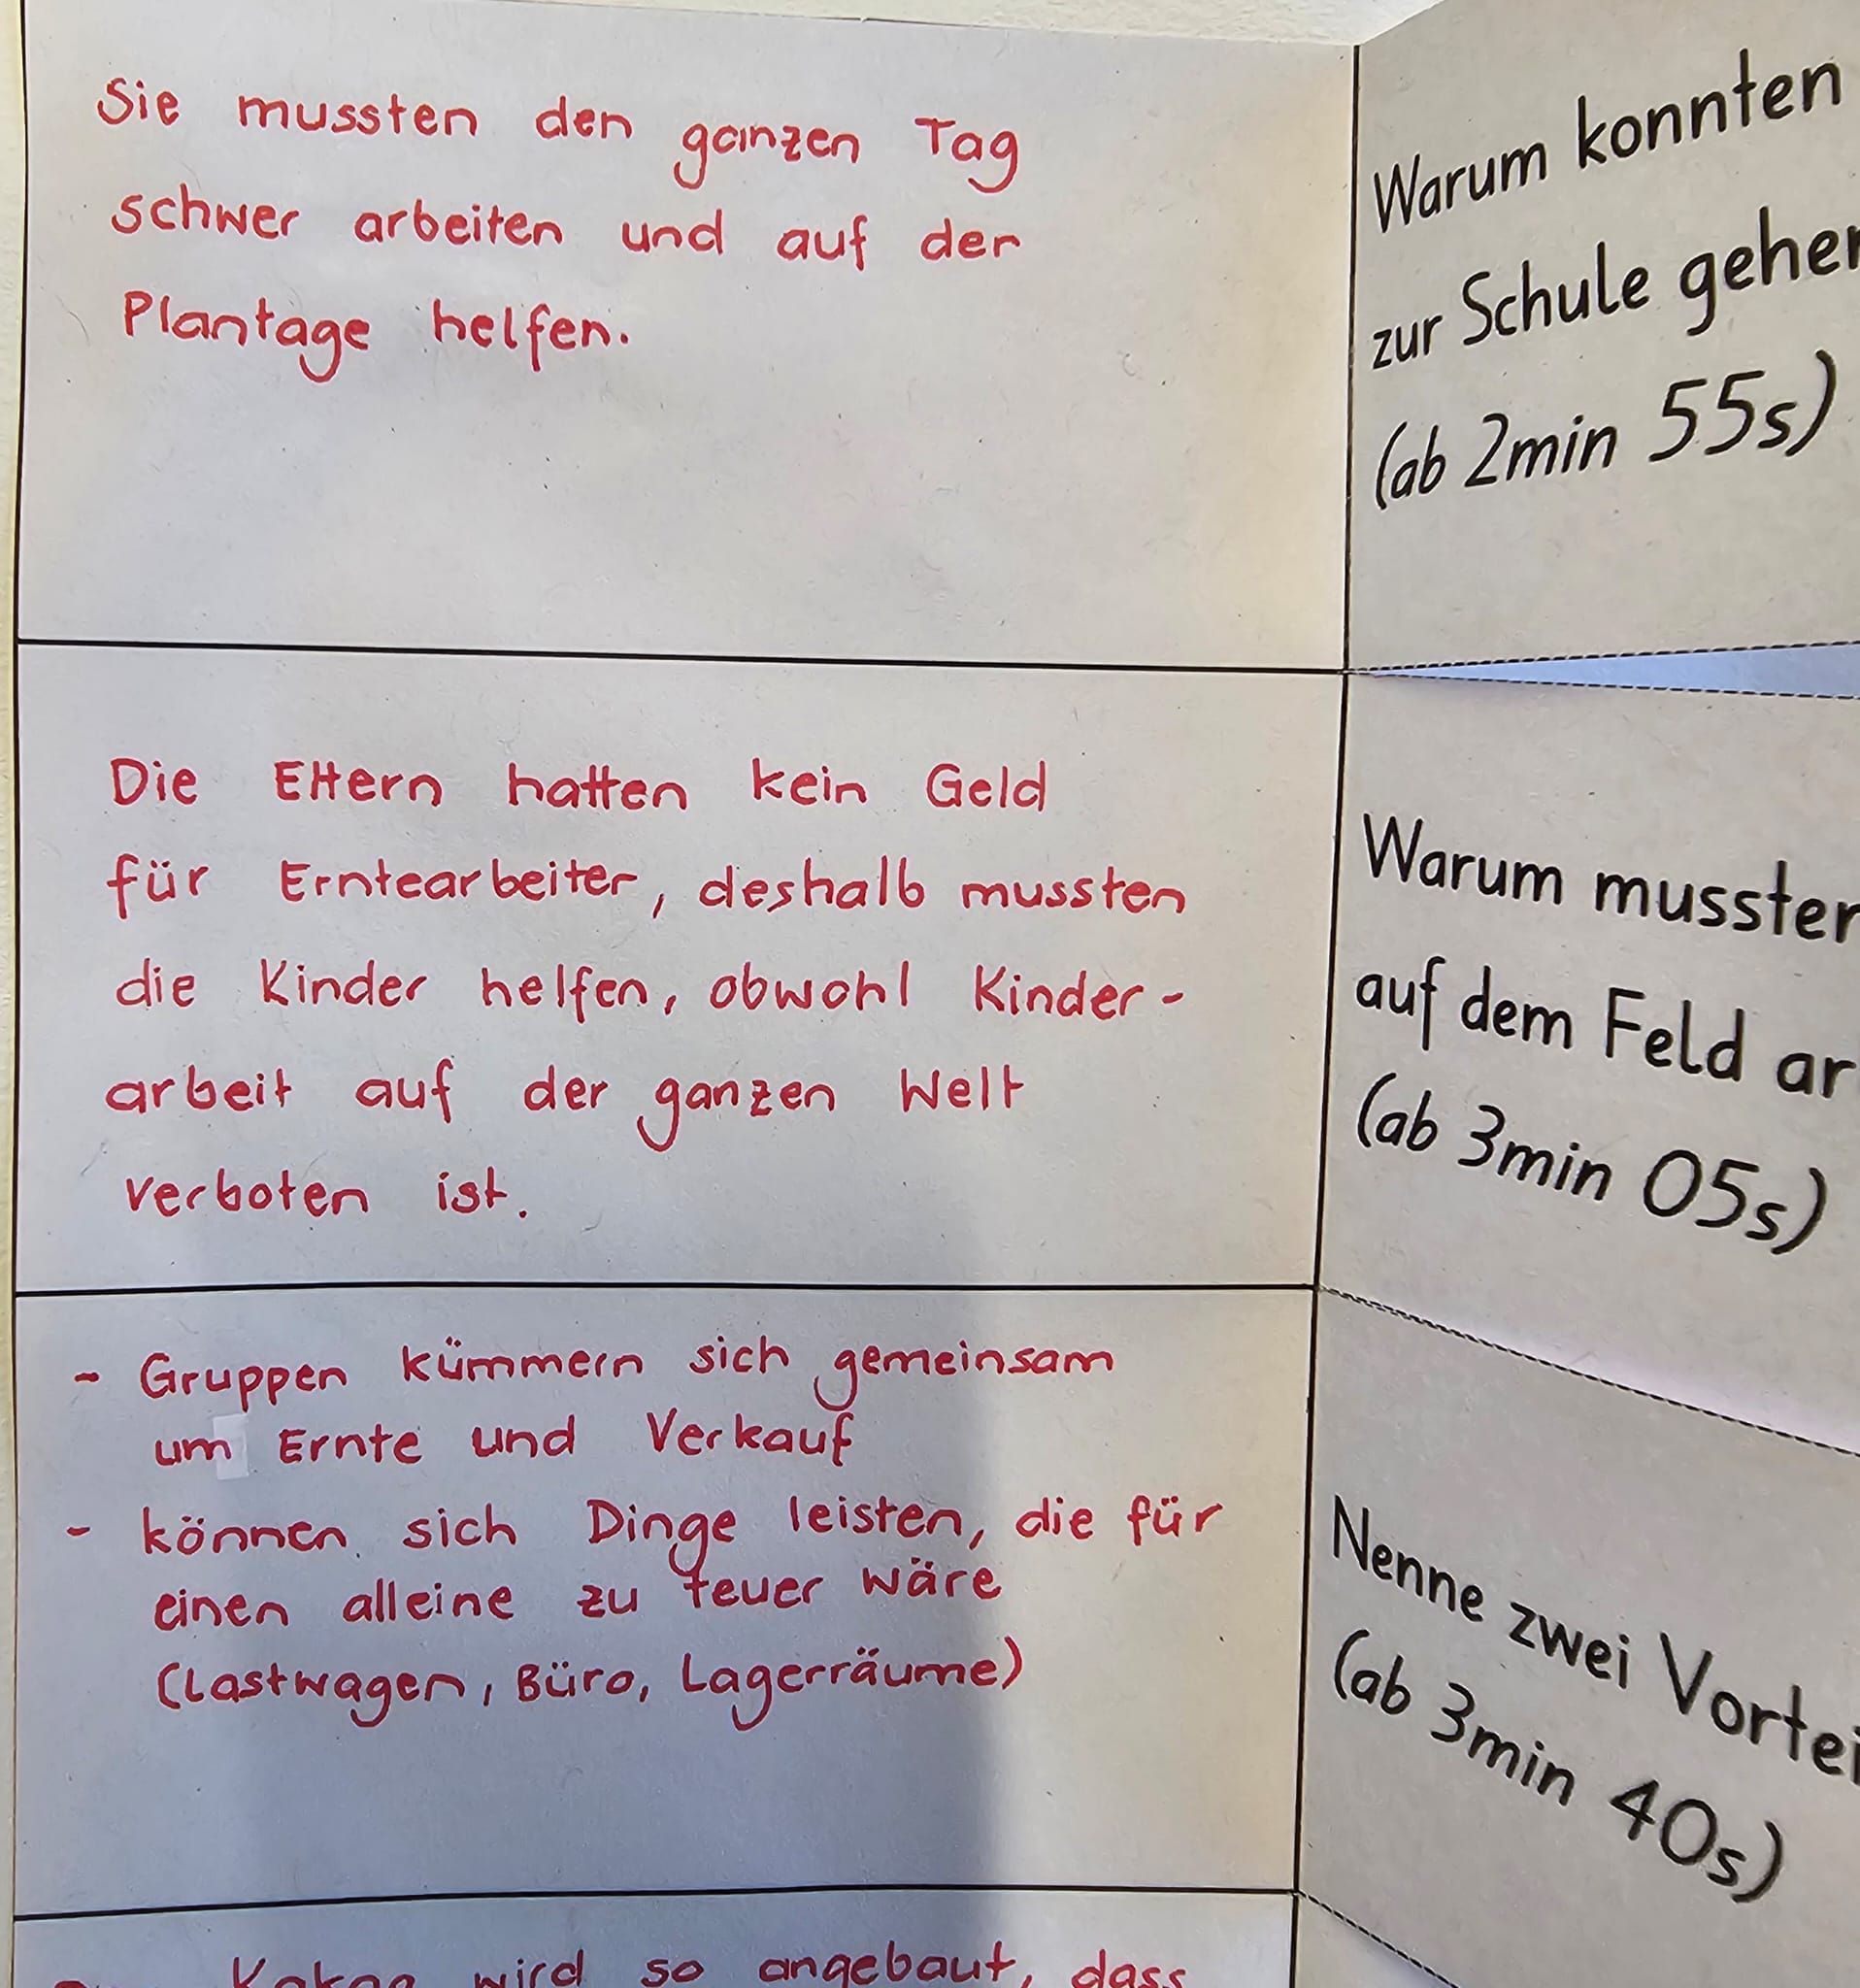 Sie mussten den ganzen Tag
schwer arbeiten und auf der
Plantage helfen.
Warum konnten
zur Schule gehen
(ab 2min 55s)
Die Eltern hatten kein Geld
für Erntearbeiter, deshalb mussten
die Kinder helfen, obwohl Kinder-
arbeit auf der ganzen Welt
verboten ist.
Warum mussten
auf dem Feld ar
(ab 3min 05s)
- Gruppen kümmern sich gemeinsam
um Ernte und Verkauf
- können sich Dinge leisten, die für
einen alleine zu teuer wäre
(Lastwagen, Büro, Lagerräume)
Nenne zwei Vortei
(ab 3min 40s)
Kakao wird so angebaut, dass